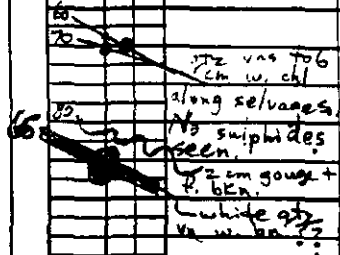 60
70
qtz vns to 6
cm w. chl
along selvages.
85
No sulphides
65
seen.
2 cm gouge +
bkn.
white qtz
vn w.